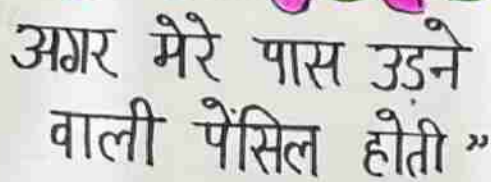 अगर मेरे पास उड़ने
वाली पेंसिल होती”